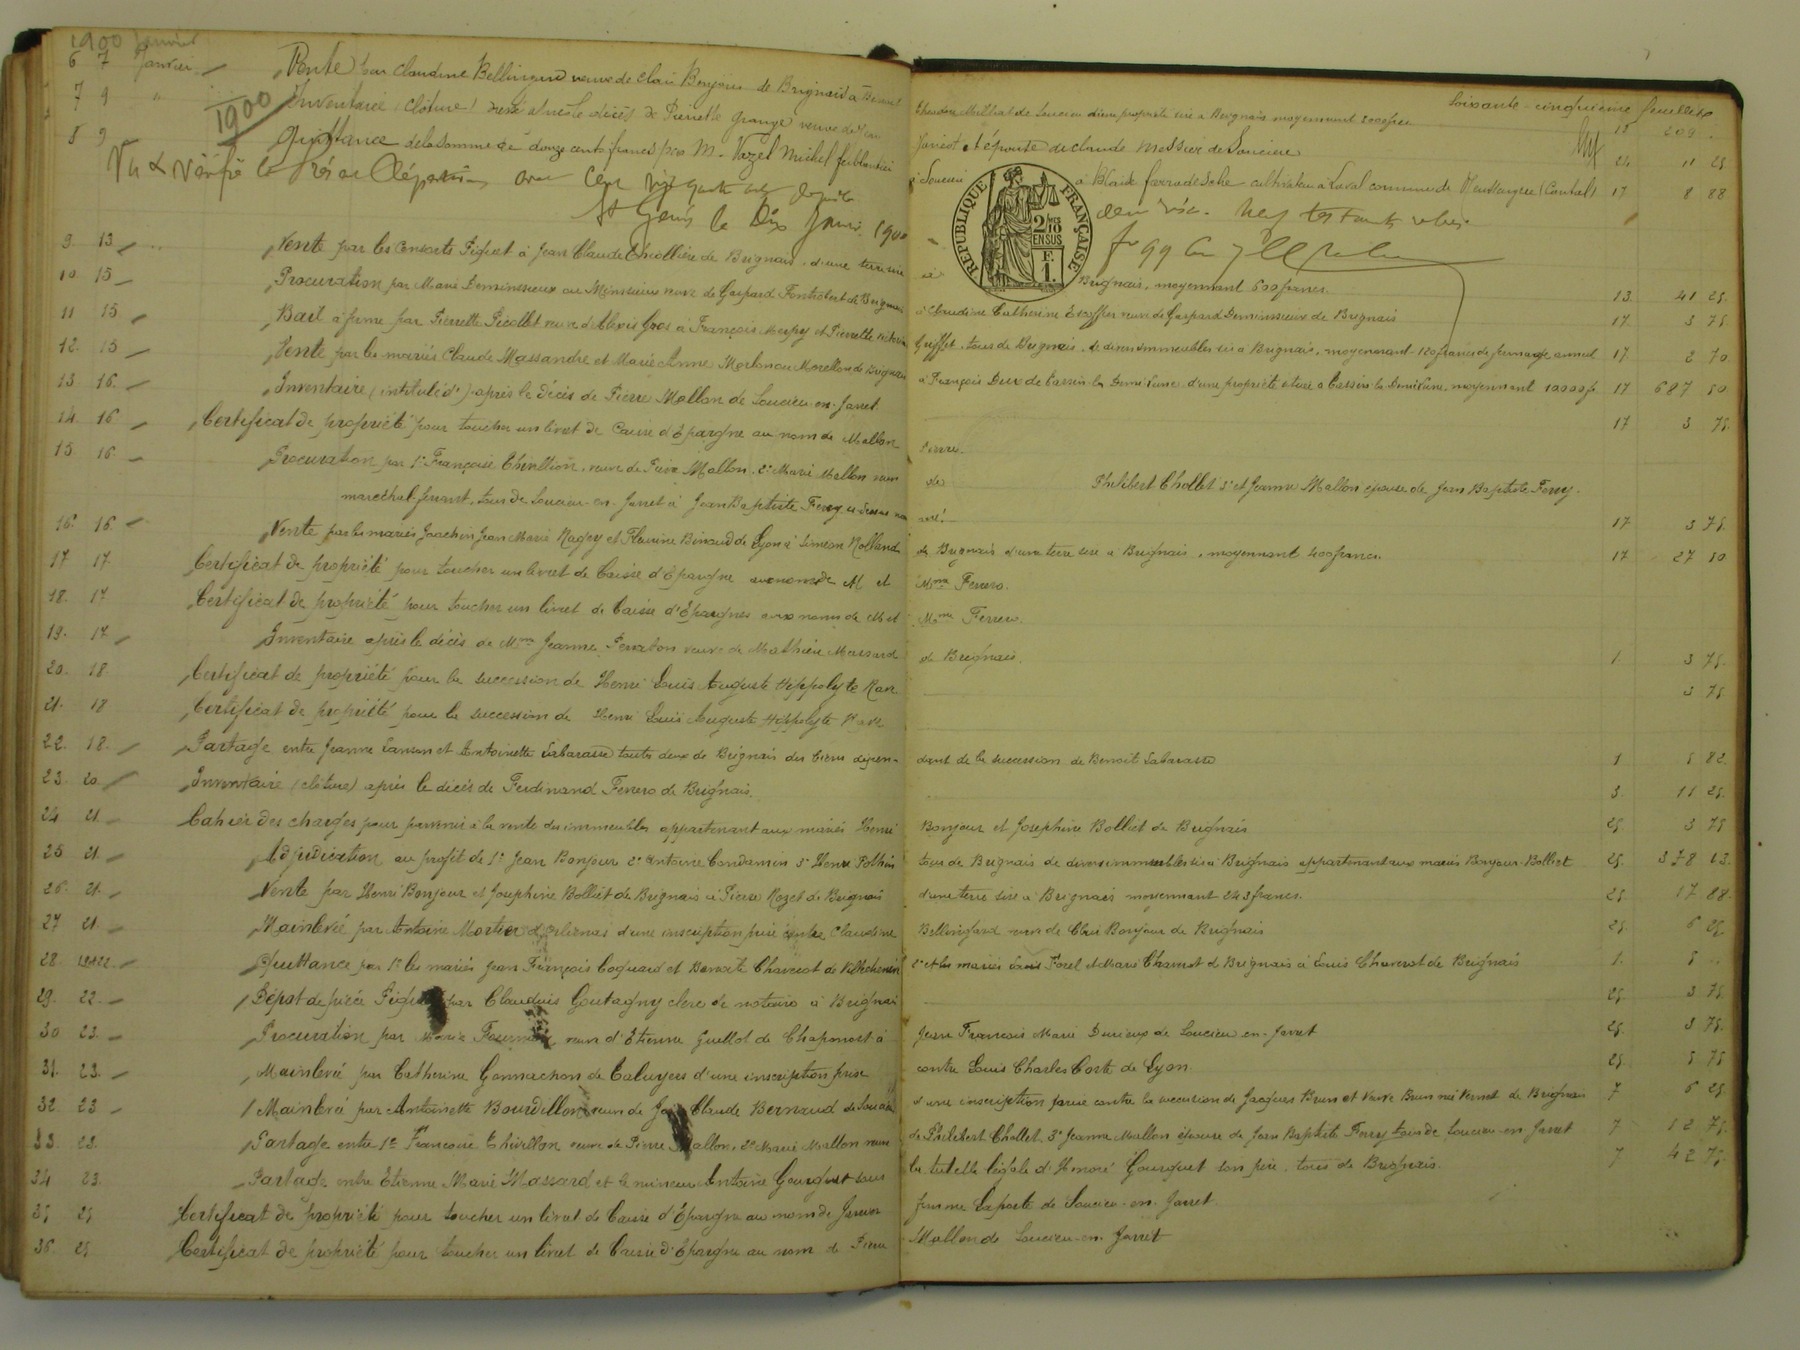 1900 Janvier
Soixante-cinquième feuillet
6 7 Janvier Vente par Claudine Bellingard veuve de Clair Bonjour de Brignais à Benoit
Theodore Milliat de Soucieu d'une propriété sise à Brignais moyennant 2000 frcs 18 209
7 9 " Inventaire (clôture) dressé après le décès de Pierrette Grange veuve de
1900
Janicot et épouse de Claude Messier de Soucieu 24 11 25
8 9 Quittance de la somme de douze cents francs par M. Vazel Michel ferblantier
à Soucieu à Blaise cultivateur à Laval commune de (Cantal) 17 8 88
Vu & Vérifié le
St Genis le Dix Janvier 1900
RÉPUBLIQUE FRANÇAISE
2/10 EN SUS
F. 1.
9. 13 Vente par les Consorts Pignet à Jean Claude Chollière de Brignais d'une terre sise
à Brignais, moyennant 600 francs. 13. 41 25.
10. 15 Procuration par Marie Deminsieux ou Minssieux veuve de Gaspard Fontrobert de Brignais
à Claudine Catherine Escoffier veuve de Gaspard Deminssieux de Brignais 17. 3 75.
11 15 Bail à ferme par Pierrette Picollet veuve de Alexis Gros à François Merpy et Pierrette Victorine
Guiffet, tous de Brignais, de divers immeubles sis à Brignais, moyennant 120 francs de fermage annuel 17 2 70
12. 15 Vente par les mariés Claude Massandre et Marie Anne Morlon ou Morellon de Brignais
à François Duc de Tassin-la-Demi-Lune d'une propriété située à Tassin-la-Demi-Lune, moyennant 10000 f. 17 687 50
13. 16. Inventaire (intitulé d') après le décès de Pierre Mallon de Soucieu-en-Jarret
17 3 75.
14. 16 Certificat de propriété pour toucher un livret de Caisse d'Epargne au nom de Mallon
Pierre.
15 16 Procuration par 1° Françoise Thivillion, veuve de Pierre Mallon, 2° Marie Mallon veuve
de Philibert Chollet 3° et Jeanne Mallon épouse de Jean Baptiste Ferry.
maréchal-ferrant, tous de Soucieu-en-Jarret à Jean Baptiste Ferry ci-dessus nom
mé. 17 3 75.
16. 16. Vente par les mariés Joachin Jean Marie Ragey et Fleurine Binaud de Lyon à Siméon Rolland
de Brignais d'une terre sise à Brignais, moyennant 400 francs. 17 27 50
17 17. Certificat de propriété pour toucher un livret de Caisse d'Epargne au nom de M et
Mme Ferrero.
18. 17 Certificat de propriété pour toucher un livret de Caisse d'Epargnes aux noms de M et
Mme Ferrero.
19. 17. Inventaire après le décès de Mme Jeanne Perraton veuve de Mathieu Massard
de Brignais. 1. 3 75.
20. 18. Certificat de propriété pour la succession de Henri Louis Auguste Hippolyte
3 75
21. 18 Certificat de propriété pour la succession de Henri Louis Auguste Hippolyte
22. 18. Partage entre Jeanne Sanson et Antoinette Labarasse toutes deux de Brignais des biens dépen-
dant de la succession de Benoit Labarasse 1 5 82.
23. 20 Inventaire (clôture) après le décès de Ferdinand Ferrero de Brignais.
3. 11 25.
24 21. Cahier des charges pour parvenir à la vente des immeubles appartenant aux mariés Henri
Bonjour et Joséphine Bolliet de Brignais 25. 3 75
25 21. Adjudication au profit de 1° Jean Bonjour 2° Antoine Condamin 3° Henri Pothin
tous de Brignais de divers immeubles sis à Brignais appartenant aux mariés Bonjour-Bolliet 25. 378 13.
26. 21. Vente par Henri Bonjour et Joséphine Bolliet de Brignais à Pierre Rozet de Brignais
d'une terre sise à Brignais moyennant 243 francs. 25 17 88.
27 21 Mainlevée par Antoine Mortier d'Orliénas d'une inscription prise contre Claudine
Bellingard veuve de Clair Bonjour de Brignais 25. 6 25
28 22 Quittance par 1° les mariés Jean François Coquard et Benoite Charvat de Villechenève
2° et les mariés Louis Forel et Marie Charvat de Brignais à Louis Charvat de Brignais 1. 5
29. 22. Dépôt de pièce par Claudius Goutagny clerc de notaire à Brignais
25 3 75.
30 23. Procuration par Marie veuve d'Etienne Guillot de Chaponost à
Jean François Marie Durieux de Soucieu-en-Jarret 25. 3 75.
31. 23. Mainlevée par Catherine Gonnachon de Taluyers d'une inscription prise
contre Louis Charles Corte de Lyon. 25. 5 75
32. 23 Mainlevée par Antoinette Bourdillon veuve de Claude Bernaud de Soucieu
d'une inscription prise contre la succession de Jacques Brun et Veuve Brun née Vernet de Brignais 7 6 25
33 23. Partage entre 1° Françoise Thivillon veuve de Pierre Mallon, 2° Marie Mallon veuve
de Philibert Chollet, 3° Jeanne Mallon épouse de Jean Baptiste Ferry tous de Soucieu-en-Jarret 7 12 75.
34 23. Partage entre Etienne Marie Massard et le mineur Antoine Gourguet sous
la tutelle légale d'Honoré Gourguet son père, tous de Brignais. 7 42 75
35 25 Certificat de propriété pour toucher un livret de Caisse d'Epargne au nom de
femme Laporte de Soucieu-en-Jarret
36. 25 Certificat de propriété pour toucher un livret de Caisse d'Epargne au nom de Pierre
Mallon de Soucieu-en-Jarret